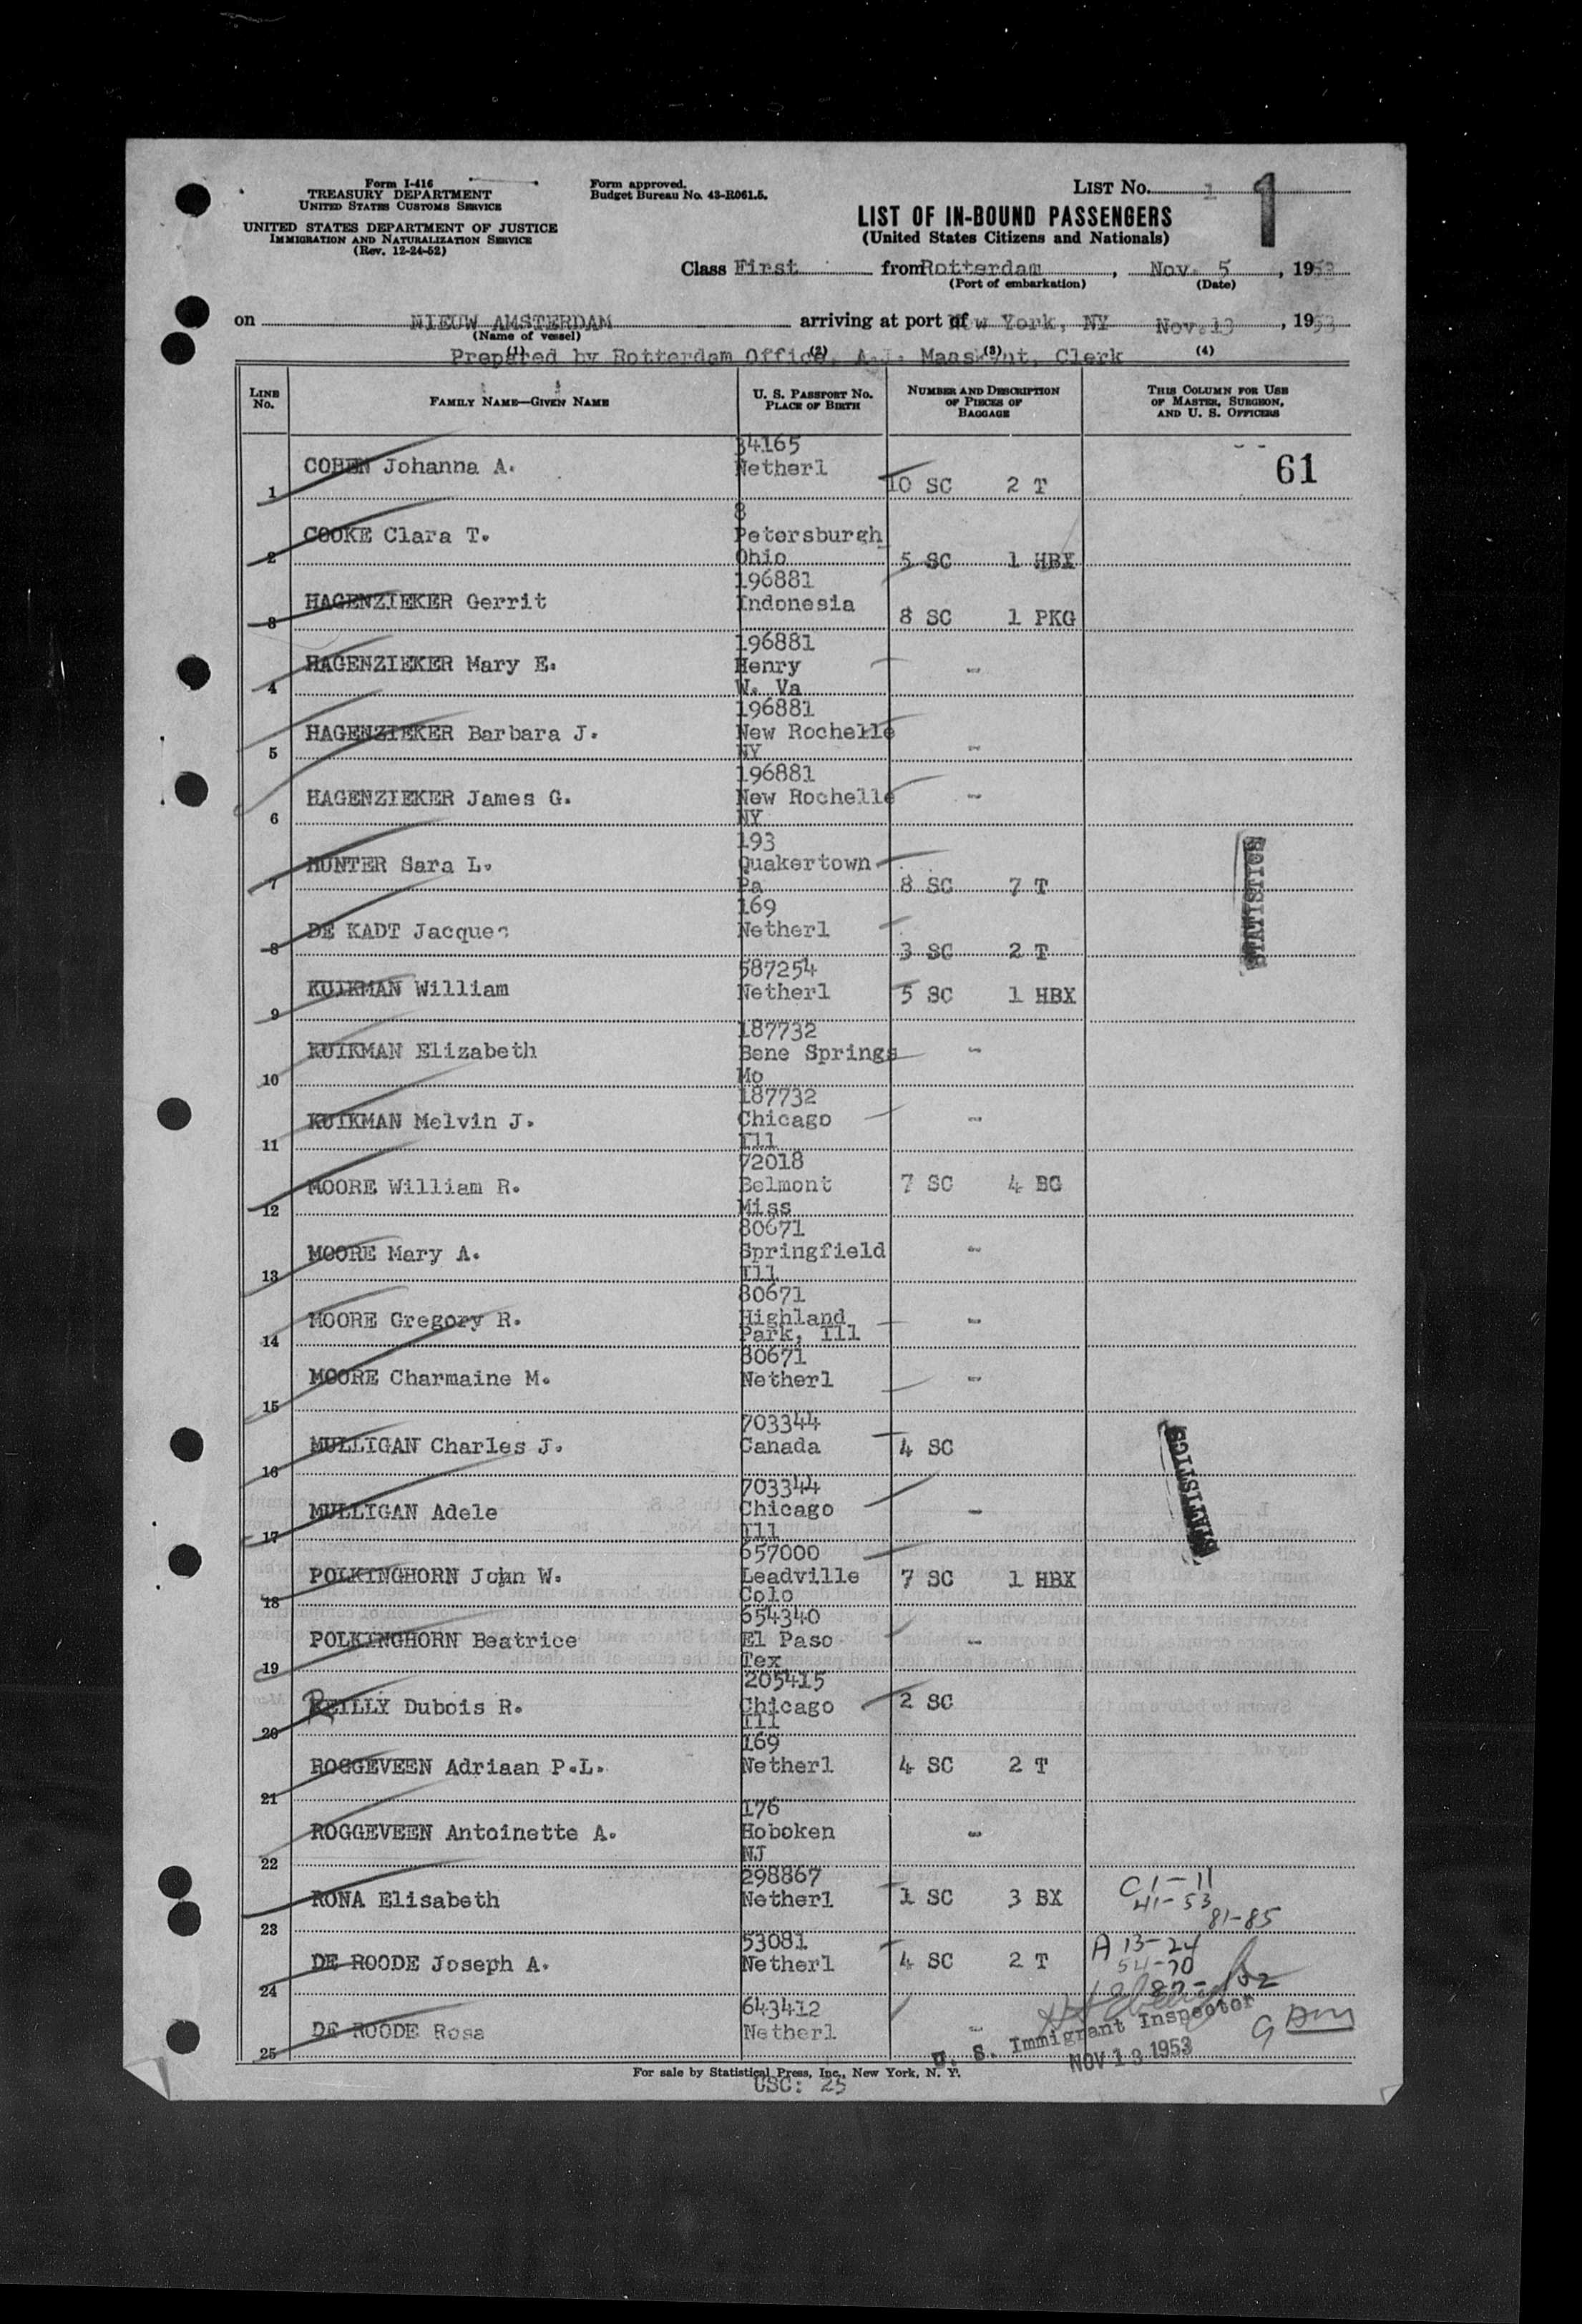 Form I-416
TREASURY DEPARTMENT
UNITED STATES CUSTOMS SERVICE
UNITED STATES DEPARTMENT OF JUSTICE
IMMIGRATION AND NATURALIZATION SERVICE
(Rev. 12-24-52)
Form approved.
Budget Bureau No. 43-R061.5.
LIST No. 1 1
LIST OF IN-BOUND PASSENGERS
(United States Citizens and Nationals)
Class First from Rotterdam, Nov. 5, 1953
(Port of embarkation) (Date)
on NIEUW AMSTERDAM arriving at port of New York, NY Nov.13, 1953
(Name of vessel)
Prepared by Rotterdam Office, A.J. Clerk
(1) (2) (3) (4)
LINE No. FAMILY NAME—GIVEN NAME U. S. PASSPORT No. PLACE OF BIRTH NUMBER AND DESCRIPTION OF PIECES OF BAGGAGE THIS COLUMN FOR USE OF MASTER, SURGEON, AND U. S. OFFICERS
61
34165
COHEN Johanna A. Netherl
1 10 SC 2 T
8
COOKE Clara T. Petersburgh
2 Ohio 5 SC 1 HBX
196881
HAGENZIEKER Gerrit Indonesia
3 8 SC 1 PKG
196881
HAGENZIEKER Mary E. Henry -
4 W. Va
196881
HAGENZIEKER Barbara J. New Rochelle
5 NY -
196881
HAGENZIEKER James G. New Rochelle -
6 NY
193
HUNTER Sara L. Quakertown
7 Pa 8 SC 7 T
STATISTICS
169
DE KADT Jacques Netherl
8 3 SC 2 T
587254
KUIKMAN William Netherl 5 SC 1 HBX
9
187732
KUIKMAN Elizabeth Bene Springs -
10 Mo
187732
KUIKMAN Melvin J. Chicago -
11 Ill
72018
MOORE William R. Belmont 7 SC 4 BG
12 Miss
80671
MOORE Mary A. Springfield -
13 Ill
80671
MOORE Gregory R. Highland -
14 Park, Ill
80671
MOORE Charmaine M. Netherl -
15
703344
MULLIGAN Charles J. Canada 4 SC
16
STATISTICS
703344
MULLIGAN Adele Chicago -
17 Ill
657000
POLKINGHORN John W. Leadville 7 SC 1 HBX
18 Colo
654340
POLKINGHORN Beatrice El Paso -
19 Tex
205415
REILLY Dubois R. Chicago 2 SC
20 Ill
169
ROGGEVEEN Adriaan P.L. Netherl 4 SC 2 T
21
176
ROGGEVEEN Antoinette A. Hoboken -
22 NJ
298867
RONA Elisabeth Netherl 1 SC 3 BX
23
C 1-11
41-53
81-85
53081
DE ROODE Joseph A. Netherl 4 SC 2 T
24
A 13-24
54-70
643412
DE ROODE Rosa Netherl -
25
U. S. Immigrant Inspector
NOV 13 1953
For sale by Statistical Press, Inc., New York, N. Y.
USC: 25